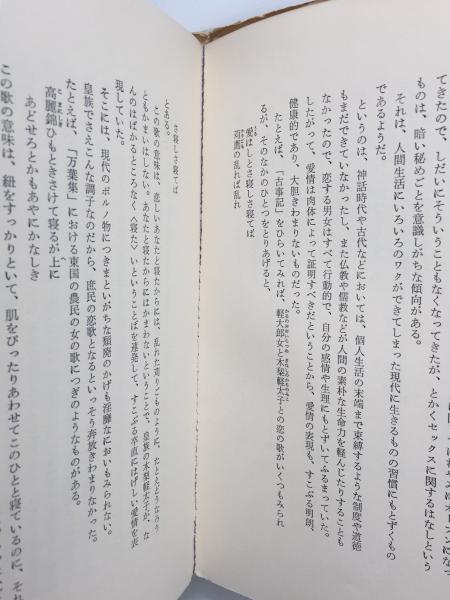 てきたので、しだいにそういうこともなくなってきたが、とかくセックスに関するはなしという
ものは、暗い秘めごとを意識しがちな傾向がある。
それは、人間生活にいろいろのワクができてしまった現代に生きるものの習慣にもとずくもの
であるようだ。
というのは、神話時代や古代などにおいては、個人生活の末端まで束縛するような制度や道徳
もまだできていなかったし、また仏教や儒教などが人間の素朴な生命力を軽んじたりすることも
なかったので、恋する男女はすべて行動的で、自分の感情や生理にもとずいてふるまっていた。
したがって、愛情は肉体によって証明すべきだということから、愛情の表現も、すこぶる明朗、
健康的であり、大胆きわまりないものだった。
たとえば、「古事記」をひらいてみれば、軽大郎女と木梨軽太子との恋の歌がいくつもみられ
るが、そのなかのひとつをとりあげると、
愛はしとさ寝しさ寝てば
刈薦の乱れば乱れ
さ寝しさ寝てば
とある。
この歌の意味は、恋しいあなたと寝たからには、乱れた苅りごものように、たとえどうなろう
ともかまいはしない。あなたと寝たからにはかまわないということで、皇族の木梨軽太子が、な
んのはばかるところなく〈寝た〉いということばを連発して、すこぶる卒直にはげしい愛情を表
現していた。
そこには、現代のポルノ物につきまといがちな頽廃のかげも淫靡なにおいもみられない。
皇族でさえこんな調子なのだから、庶民の恋歌となるといっそう奔放きわまりなかった。
たとえば、「万葉集」における東国の農民の女の歌につぎのようなものがある。
高麗錦ひもときさけて寝るが上に
あどせろとかもあやにかなしき
この歌の意味は、紐をすっかりといて、肌をぴったりあわせてこのひとと寝ているのに、それ